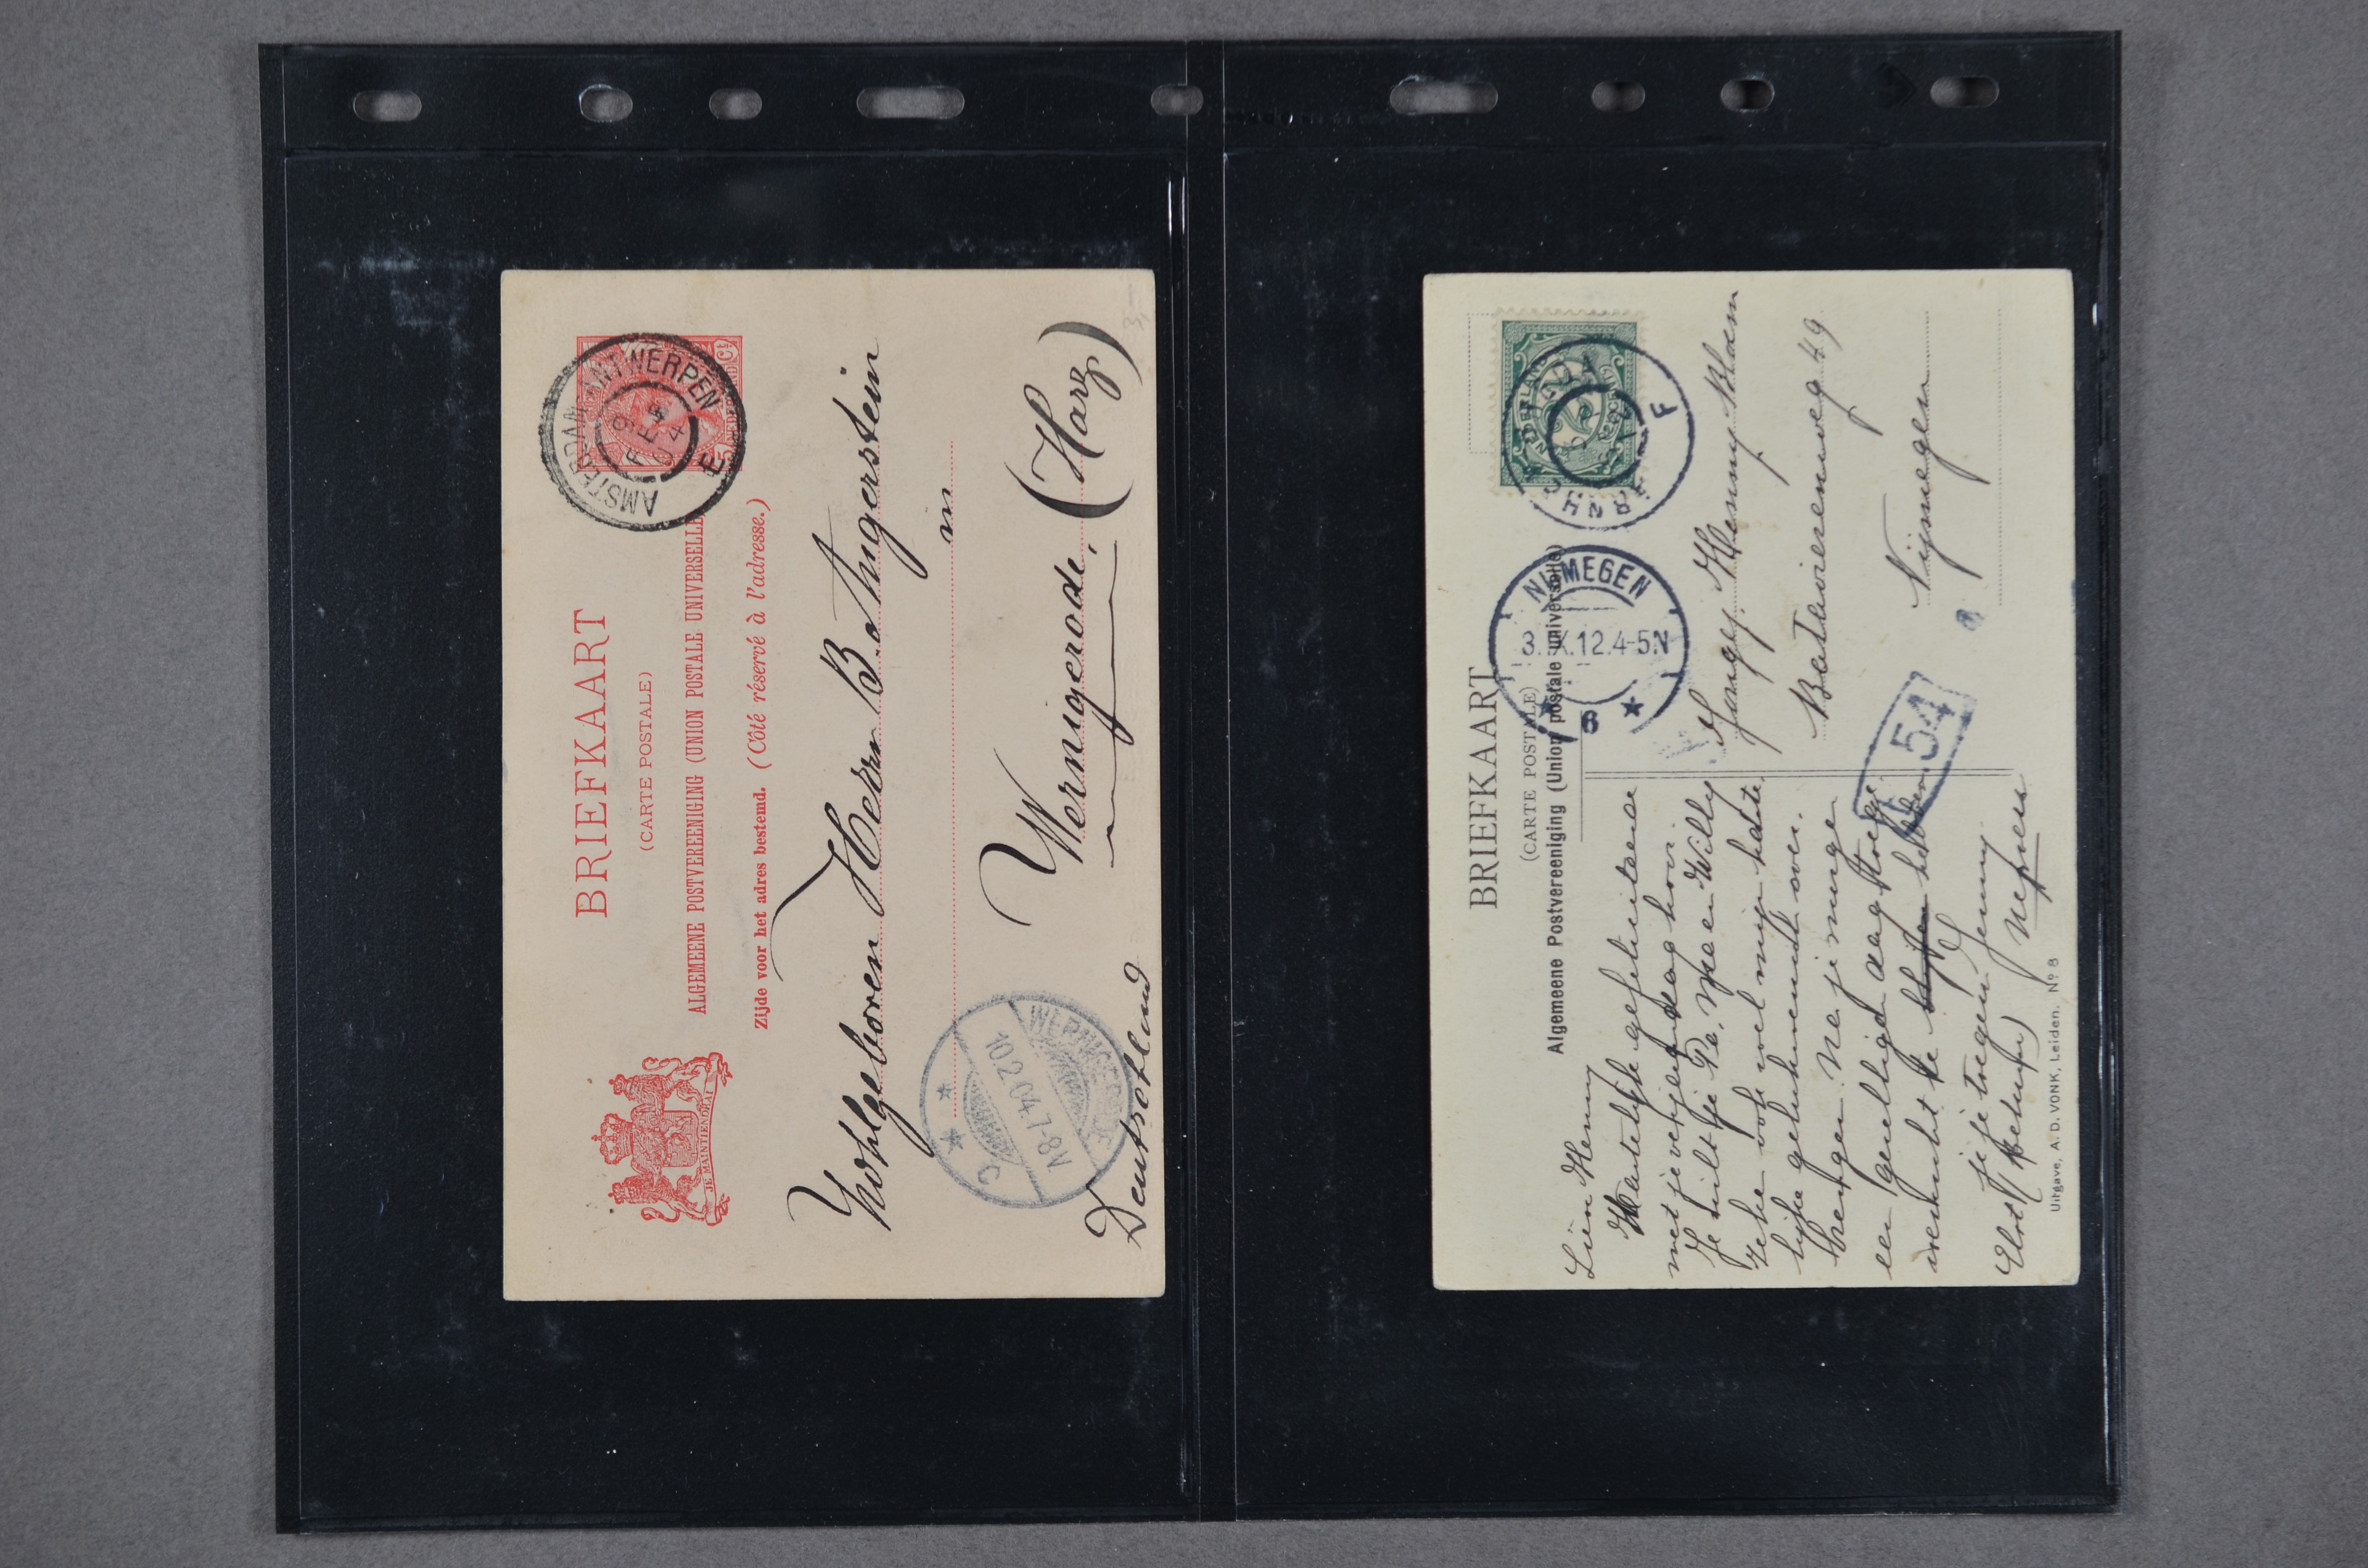 BRIEFKAART
(CARTE POSTALE)
ALGEMEENE POSTVEREENIGING (UNION POSTALE UNIVERSELLE
Zijde voor het adres bestemd. (Côté réservé à l'adresse.)
JE MAINTIENDRAI
AMSTERDAM-ANTWERPEN
E
Wohlgeboren Herrn B. Angerstein
in
Wernigerode. (Harz)
Deutschland
WERNIGERODE
10.2.04.7-8V.
3,-
BRIEFKAART
(CARTE POSTALE)
Algemeene Postvereeniging (Union postale universelle)
NEDERLAND
F
NIJMEGEN
3.IX.12.4-5N
6
54
Jongej. Henny Bloem
Batavierenweg 49
Nijmegen
Lien Henny
Hartelijk gefeliciteerd
met je verjaardag hoor
Je zult je Pa, Ma en Willy
zeker ook wel mijn harte
lijke gelukwensch over.
brengen.
een gezellige dag
Jenny
Elst (Betuwe)
Uitgave, A. D. VONK, Leiden. No 8